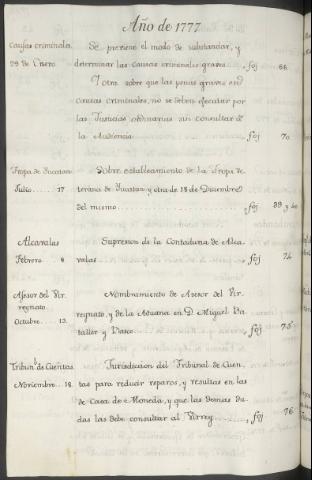 Año de 1777
Causas criminales. Se previene el modo de substanciar, y
29 de Enero determinar las causas criminales graves, foj 66
Y otra sobre que las penas graves en
causas criminales, no se deben ejecutar por
las Justicias ordinarias sin consultar à
la Audiencia , foj 70
Tropa de Yucatan Sobre establecimiento de la Tropa ve
Julio..... 17 terana de Yucatan y otra de 18 de Diciembre
del mismo foj 39 y 40
Alcavalas Supresion de la Contaduria de Alca
Febrero 8 valas , foj 74
Asesor del Vir Nombramiento de Asesor del Vir
reynato reynato, y de la Aduana en D. Miguel Ba
Octubre.... 13. taller y Basco , foj 75
Tribun.l de Cuentas Jurisdicion del Tribunal de Cuen
Noviembre.. 18. tas para reducir reparos, y resultas en las
de Casa de Moneda, y que las demas du
das las debe consultar al Virrey , foj 76